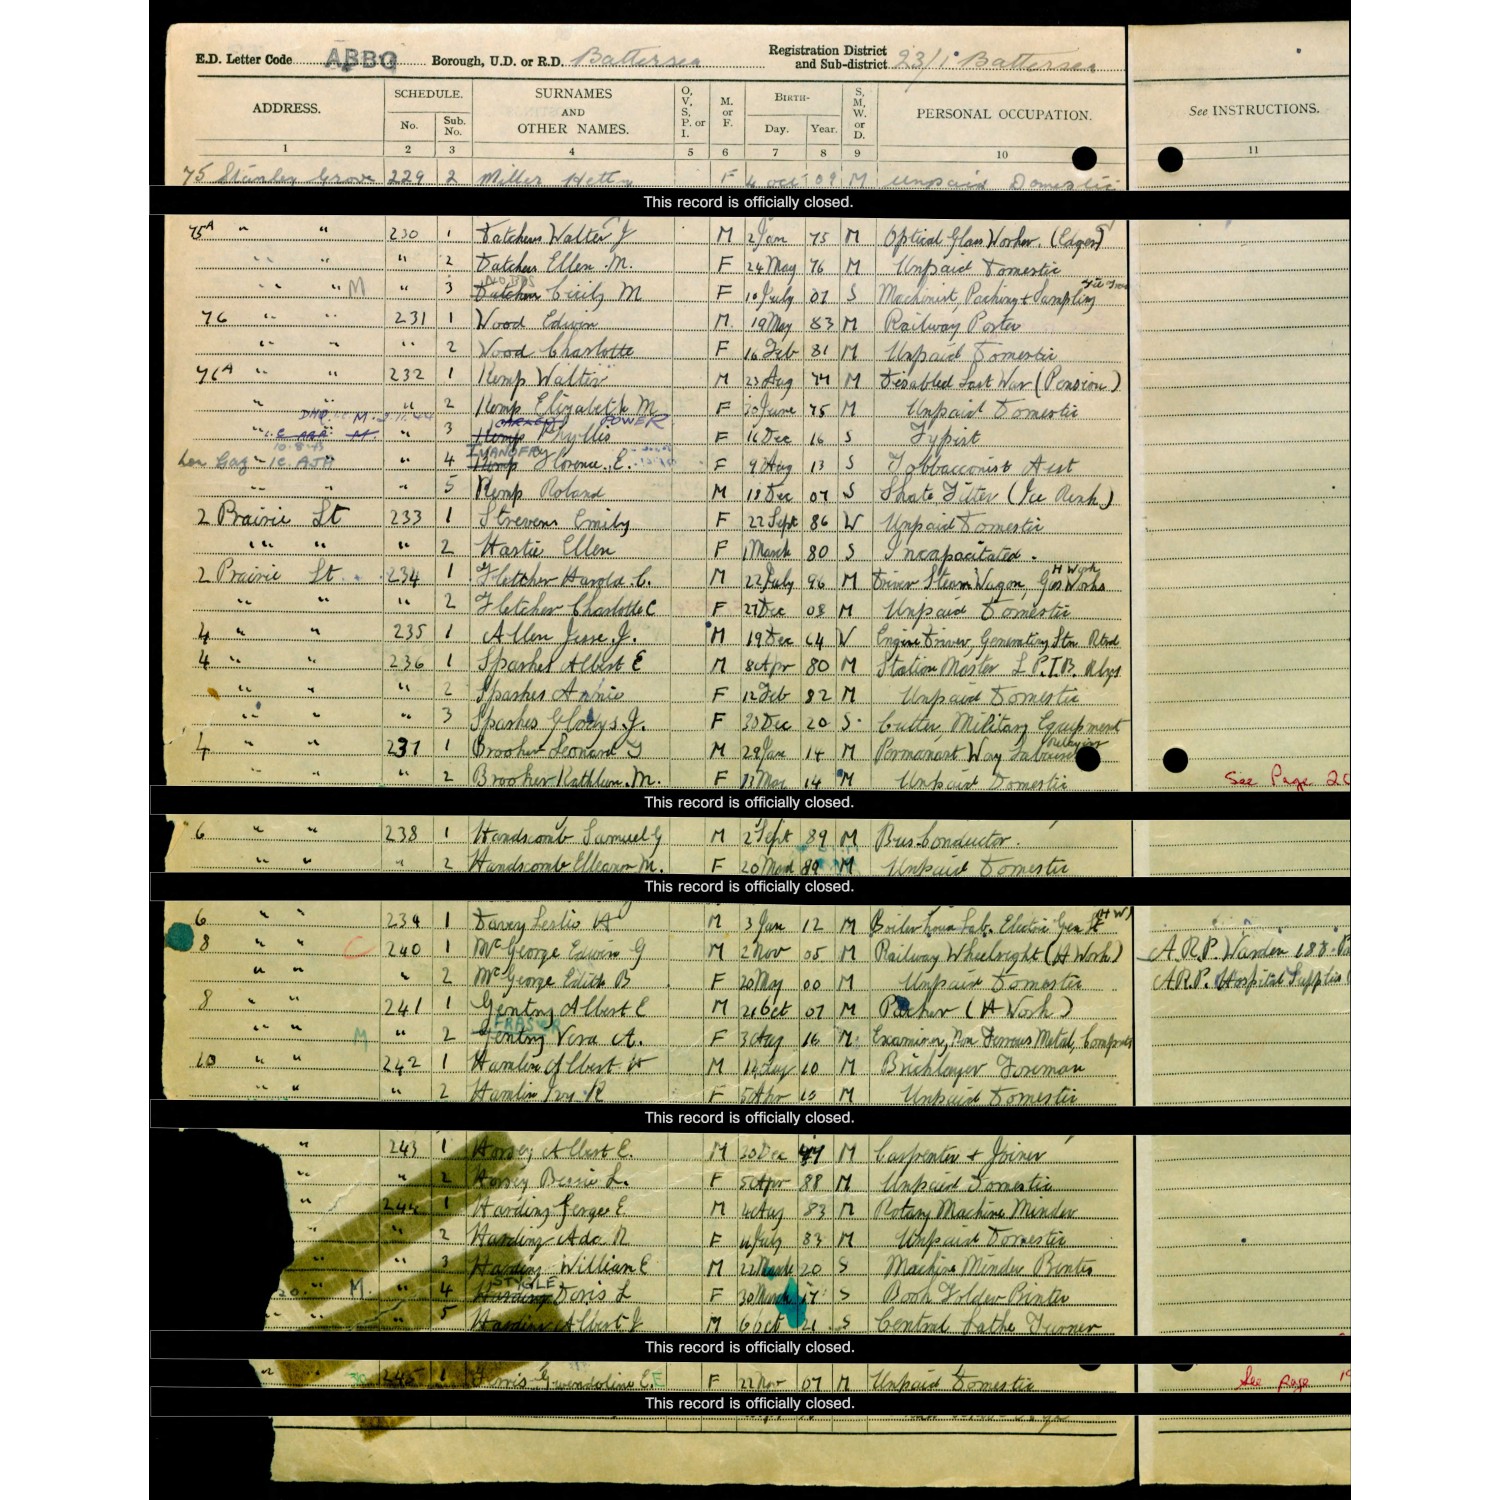 E.D. Letter Code ABBQ Borough, U.D. or R.D. Battersea Registration District and Sub-district 23/1 Battersea
ADDRESS. SCHEDULE. No. Sub. No. SURNAMES AND OTHER NAMES. O, V, S, P, or I. M. or F. BIRTH- Day. Year. S, M, W, or D. PERSONAL OCCUPATION. See INSTRUCTIONS.
1 2 3 4 5 6 7 8 9 10 11
75 Stanley Grove 229 2 Miller Hetty F 4 Oct 09 M Unpaid Domestic
This record is officially closed.
75A " " 230 1 Walter J M 2 Jan 75 M Optical Glass Worker (Edger)
" " " 2 Ellen M. F 24 May 76 M Unpaid Domestic
" " M " 3 Cicily M F 10 July 07 S Machinist, Packing & Sampling
76 " " 231 1 Wood Edwin M 19 May 83 M Railway Porter
" " " 2 Wood Charlotte F 16 Feb 81 M Unpaid Domestic
76A " " 232 1 Kemp Walter M 23 Aug 74 M Disabled Last War (Pension)
" " 2 Kemp Elizabeth M F 30 June 75 M Unpaid Domestic
POWER
" 3 Kemp Phyllis F 16 Dec 16 S Typist
" 4 Kemp Florence. E. F 9 Aug 13 S Tobbacconist Asst
" " " 5 Kemp Roland M 18 Dec 07 S Skate Fitter (Ice Rink)
2 Prairie St 233 1 Strevens Emily F 22 Sept 86 W Unpaid Domestic
" " " 2 Hastie Ellen F 1 March 80 S Incapacitated.
2 Prairie St 234 1 Fletcher Harold C. M 22 July 96 M Driver Steam Wagon, Gas Works H Work
" " " 2 Fletcher Charlotte C F 27 Dec 08 M Unpaid Domestic
4 " " 235 1 Allen Jesse J. M 19 Dec 64 W Engine Driver, Generating Stn Rtd
4 " " 236 1 Sparkes Albert E M 8 Apr 80 M Station Master L.P.T.B. Rlys
" " " 2 Sparkes Annie F 12 Feb 82 M Unpaid Domestic
" " " 3 Sparkes Gladys J. F 30 Dec 20 S Cutter, Military Equipment
4 " " 237 1 Brooker Leonard M 29 Jan 14 M Permanant Way Labourer
" 2 Brooker Kathleen M. F 14 M Unpaid Domestic See Page
This record is officially closed.
6 " " 238 1 Handscomb Samuel G M 2 Sept 89 M Bus Conductor.
" " " 2 Handscomb Elleanor M. F 20 89 M Unpaid Domestic
This record is officially closed.
6 " " 239 1 Davey Leslie A M 3 Jan 12 M Boiler House Lab. Electric Gen (H W)
8 " " C 240 1 McGeorge Edwin G M 2 Nov 05 M Railway Wheelwright (H Work) A.R.P. Warden
" " " 2 McGeorge Edith B F 20 May 00 M Unpaid Domestic A.R.P. Hospital Supplies
8 " " 241 1 Gentry Albert E M 21 Oct 07 M Packer (H Work)
FRASER
" " M " 2 Gentry Vera A. F 3 Aug 16 M Examiner, Non Ferrous Metal,
10 " " 242 1 Hamlin Albert M 10 M Bricklayer Foreman
" " " 2 Hamlin Ivy R F 5 Apr 10 M Unpaid Domestic
This record is officially closed.
" 243 1 Albert E. M 20 Dec M Carpenter & Joiner
" " 2 Bessie L. F 5 Apr 88 M Unpaid Domestic
" 244 1 Harding George E. M 4 Aug 83 M Rotary Machine Minder
" " 2 Harding Ada R F July 83 M Unpaid Domestic
" " 3 Harding William E M 22 March 20 S Machine Minder Printer
STYGLE
M. " 4 Harding Doris L F 30 March 17 S Book Folder Printer
" 5 Harding Albert J M 6 Oct 21 S Central Lathe Turner
This record is officially closed.
" 245 1 Gwendoline E. F 22 Nov 07 M Unpaid Domestic See Page
This record is officially closed.